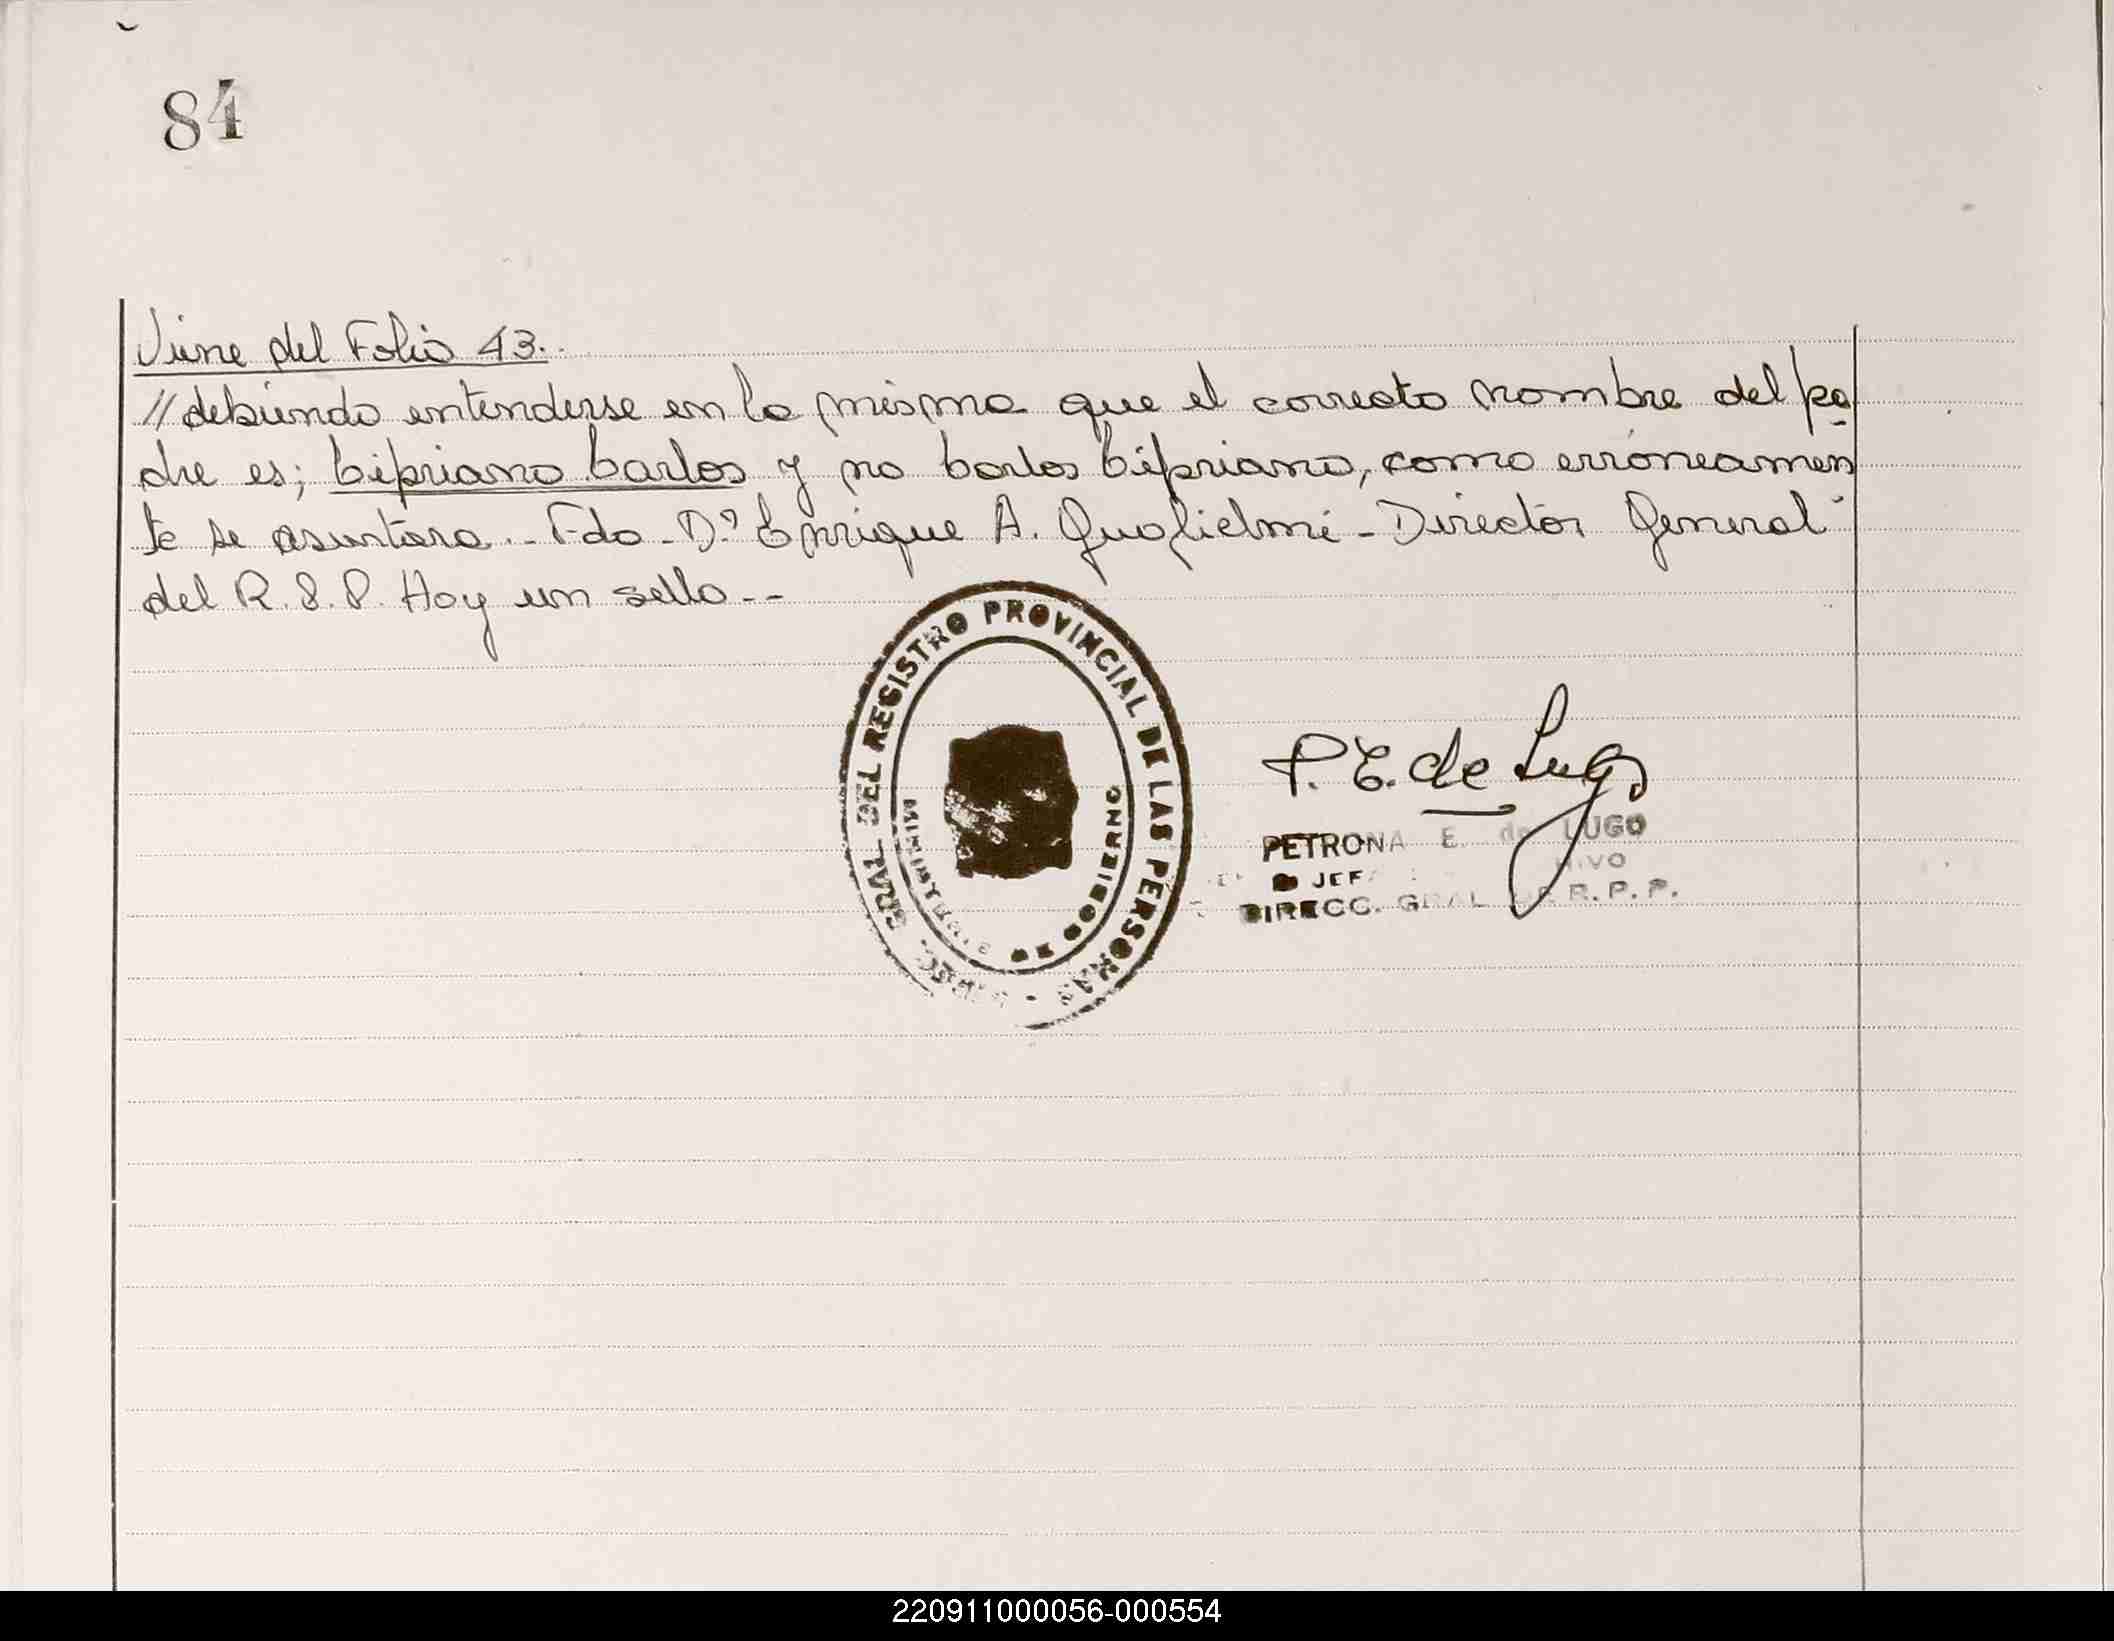 84
Viene del Folio 43..
// debiendo entenderse en la misma que el correcto nombre del pa
dre es; Cipriano Carlos y no Carlos Cipriano, como erróneamen
te se asentara.- Fdo- Dº Enrique A. Guglielmi - Director General
del R.P.P. Hay un sello--
DIREC. GRAL. DEL REGISTRO PROVINCIAL DE LAS PERSONAS
MINISTERIO DE GOBIERNO
P. E. de Lugo
PETRONA E. de LUGO
JEFA
DIRECC. GRAL DE R.P.P.
220911000056-000554